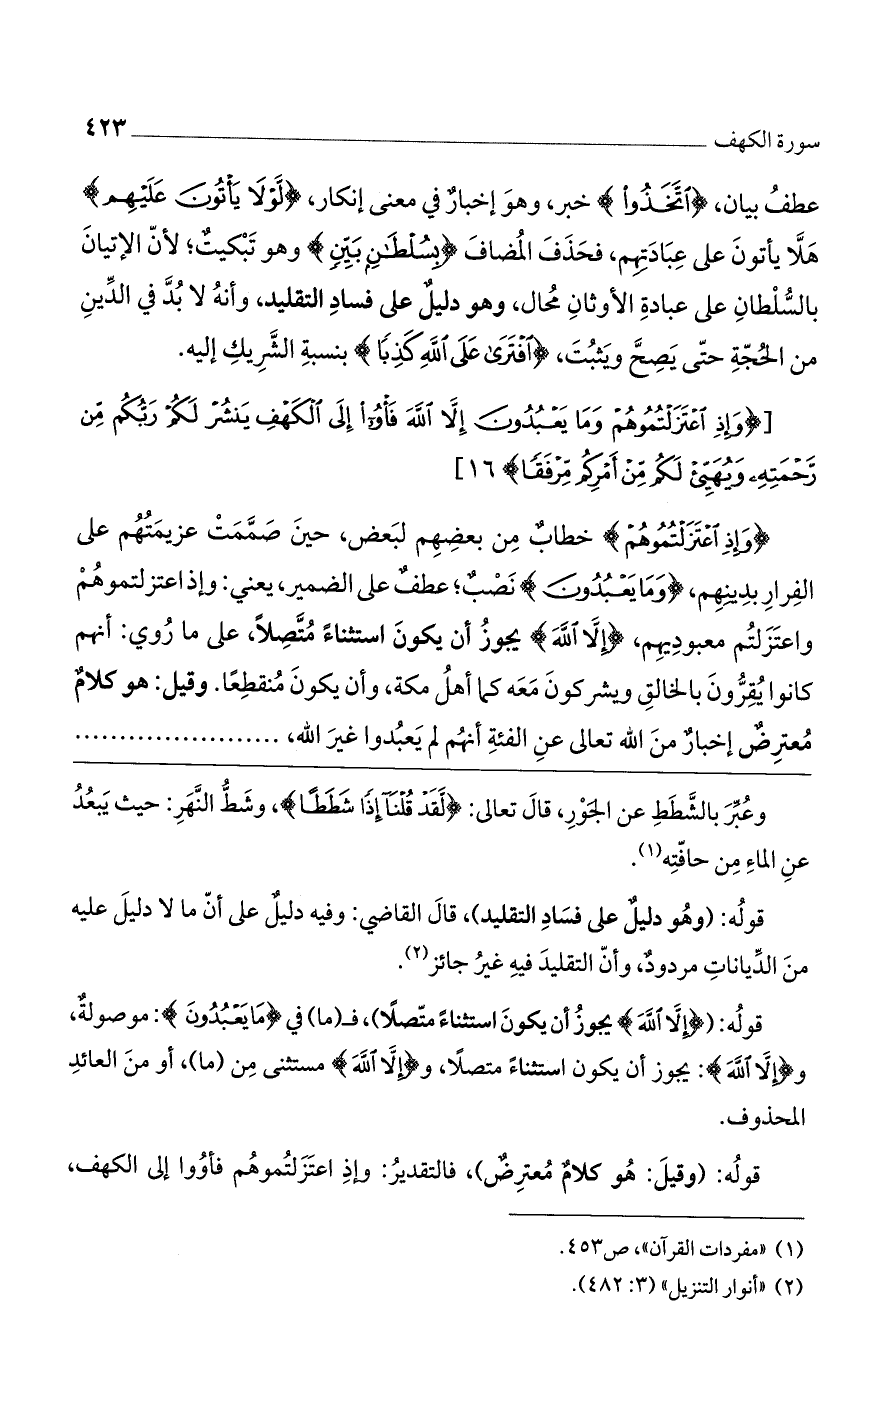 سورة الكهف ٤٢٣
عطفُ بيان، ﴿ٱتَّخَذُوا۟﴾ خبر، وهوَ إخبارٌ في معنى إنكار، ﴿لَّوْلَا يَأْتُونَ عَلَيْهِم﴾
هَلَّا يأتونَ على عِبَادَتِهم، فحَذَفَ المُضافَ ﴿بِسُلْطَٰنٍۭ بَيِّنٍ﴾ وهو تَبْكيتٌ؛ لأنّ الإتيانَ
بالسُّلْطانِ على عبادةِ الأوثانِ مُحال، وهو دليلٌ على فسادِ التقليد، وأنهُ لا بُدَّ في الدِّينِ
من الحُجّةِ حتّى يَصِحَّ ويَثبُتَ، ﴿ٱفْتَرَىٰ عَلَى ٱللَّهِ كَذِبًا﴾ بنسبةِ الشَّريكِ إليه.
[﴿وَإِذِ ٱعْتَزَلْتُمُوهُمْ وَمَا يَعْبُدُونَ إِلَّا ٱللَّهَ فَأْوُۥٓا۟ إِلَى ٱلْكَهْفِ يَنشُرْ لَكُمْ رَبُّكُم مِّن
رَّحْمَتِهِۦ وَيُهَيِّئْ لَكُم مِّنْ أَمْرِكُم مِّرْفَقًا﴾ ١٦]
﴿وَإِذِ ٱعْتَزَلْتُمُوهُمْ﴾ خطابٌ مِن بعضِهِم لبَعض، حينَ صَمَّمَتْ عزيمَتُهُم على
الفِرارِ بدِينِهِم، ﴿وَمَا يَعْبُدُونَ﴾ نَصْبٌ؛ عطفٌ على الضمير، يعني: وإذ اعتزلتموهُمْ
واعتَزَلتُم معبودِيهِم، ﴿إِلَّا ٱللَّهَ﴾ يجوزُ أن يكونَ استثناءً مُتَّصِلاً، على ما رُوي: أنهم
كانوا يُقِرُّونَ بالخالقِ ويشركونَ مَعَه كما أهلُ مكة، وأن يكونَ مُنقطِعًا. وقيل: هو كلامٌ
مُعترِضٌ إخبارٌ منَ الله تعالى عنِ الفئةِ أنهُم لم يَعبُدوا غيرَ الله، ......................
وعُبِّرَ بالشَّطَطِ عن الجَوْرِ، قالَ تعالى: ﴿لَّقَدْ قُلْنَآ إِذًا شَطَطًا﴾، وشَطُّ النَّهَرِ: حيث يَبعُدُ
عنِ الماءِ مِن حافّتِه(١).
قولُه: (وهُو دليلٌ على فسَادِ التقليد)، قالَ القاضي: وفيه دليلٌ على أنّ ما لا دليلَ عليه
منَ الدِّياناتِ مردودٌ، وأنّ التقليدَ فيهِ غيرُ جائز(٢).
قولُه: (﴿إِلَّا ٱللَّهَ﴾ يجوزُ أن يكونَ استثناءً متّصلًا)، فـ(ما) في ﴿مَا يَعْبُدُونَ﴾: موصولةٌ،
و﴿إِلَّا ٱللَّهَ﴾: يجوز أن يكون استثناءً متصلًا، و﴿إِلَّا ٱللَّهَ﴾ مستثنى مِن (ما)، أو منَ العائدِ
المحذوف.
قولُه: (وقيلَ: هُو كلامٌ مُعترِضٌ)، فالتقديرُ: وإذِ اعتَزَلتُموهُم فأوُوا إلى الكهف،
(١) «مفردات القرآن»، ص٤٥٣.
(٢) «أنوار التنزيل» (٣: ٤٨٢).